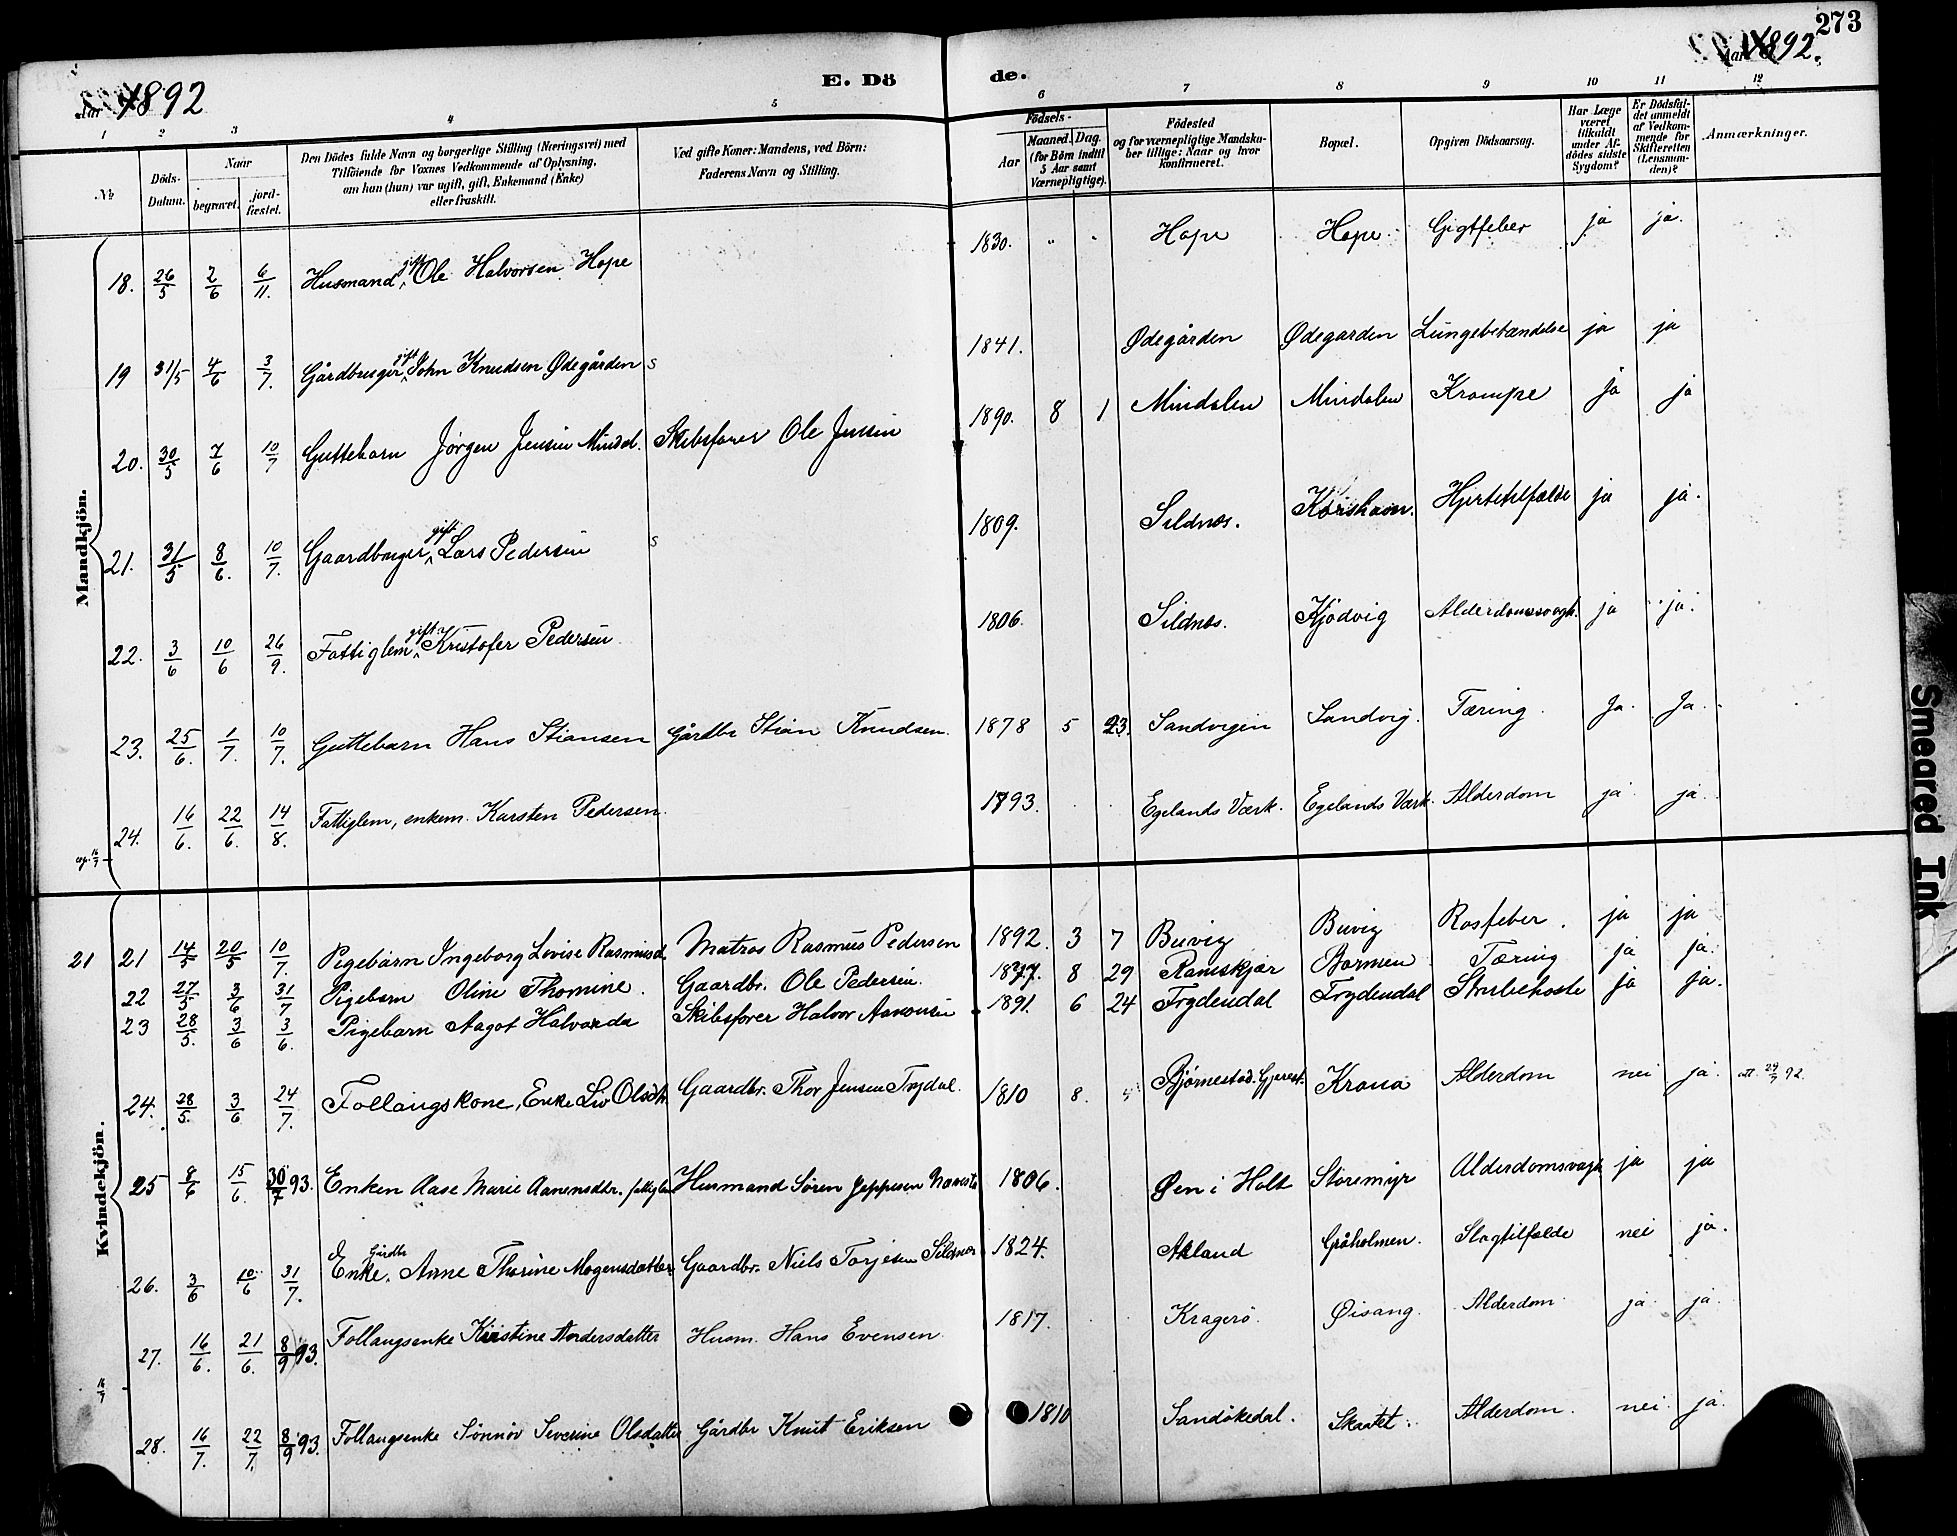 273
Aar 1892
E. Dö
de.
Aar 1892.
1 2 3 4 5 6 7 8 9 10 11 12
No
Döds-Datum.
Naar
begravet.
jord-fæstet.
Den Dödes fulde Navn og borgerlige Stilling (Næringsvei) med Tilföiende for Voxnes Vedkommende af Oplysning, om han (hun) var ugift, gift, Enkemand (Enke) eller fraskilt.
Ved gifte Koner: Mandens, ved Börn: Faderens Navn og Stilling.
Födsels-
Aar
Maaned. Dag.
(for Börn indtil 5 Aar samt Værnepligtige).
Födested og for værnepligtige Mandskaber tillige: Naar og hvor konfirmeret.
Bopæl.
Opgiven Dödsaarsag.
Har Læge været tilkaldt under Afdödes sidste Sygdom?
Er Dödsfaldet anmeldt af Vedkommende for Skifteretten (Lensmanden)?
Anmærkninger.
Mandkjön.
18. 26/5 2/6 6/11. Husmand, gift Ole Halvorsen Hope 1830. " " Hope Hope Gigtfeber ja ja.
19 31/5 4/6 3/7. Gårdbruger, gift John Knudsen Ødegården s 1841. Ødegården Ødegarden Lungebetændelse ja ja
20. 30/5 7/6 10/7 Guttebarn Jørgen Jensen Mindal. Skibsfører Ole Jensen 1890. 8 1 Mindalen Mindalen Krampe ja ja
21. 31/5 8/6. 10/7. Gaardbruger, gift Lars Pedersen s 1809. Sildnæs. Korshavn. Hjertetilfælde ja ja.
22. 3/6 10/6 26/9. Fattiglem, gift Kristofer Pedersen 1806. Sildnæs. Kjødvig Alderdomssvagh. ja ja.
23. 25/6. 1/7. 10/7. Guttebarn Hans Stiansen Gårdbr Stian Knudsen. 1878 5 23. Sandvigen Sandvig. Tæring. Ja. Ja.
24. 16/6. 22/6. 14/8. Fattiglem, enkem. Karsten Pedersen. 1793. Egelands Værk. Egelands Værk. Alderdom ja ja.
16/7
Kvindekjön.
21 21 14/5 20/5 10/7. Pigebarn Ingeborg Lovise Rasmusd. Matros Rasmus Pedersen 1892. 3 7 Buvig Buvig Rosfeber. ja ja
22 27/5 3/6 31/7 Pigebarn Oline Thomine. Gaardbr. Ole Pedersen. 1877. 8 29 Ramskjær Barmen Tæring ja ja.
23 28/5. 3/6 3/6. Pigebarn Aagot Halvarda Skibsfører Halvor Aanonsen 1891. 6 24 Trydendal Trydendal Strubehoste ja ja.
24. 28/5. 3/6 24/7. Follaugskone, Enke Liv Olsdtr. Gaardbr. Thor Jensen Trydal. 1810 8. Bjørnestad. Gjerest. Krana Alderdom nei ja. att. 29/7 92.
25 8/6 15/6. 30/7 93. Enken Aase Marie Aanensdtr. fattiglem Husmand Søren Jeppesen 1806. Øen i Holt Storemyr Alderdomsvagh. ja ja
26. 3/6 10/6 31/7. Enke. Gårdbr Anne Thorine Mogensdatter Gaardbr. Niels Torjesen Sildnæs 1824. Akland Gråholmen. Slagtilfælde nei ja.
27. 16/6. 21/6. 8/9 93. Follaugsenke Kirstine Andersdatter Husm. Hans Evensen 1817. Kragerö. Øisang. Alderdom ja ja.
16/7
28. 16/7. 22/7. 8/9 93. Follaugsenke Sønnøv Severine Olsdatter Gårdbr Knut Eriksen 1810 Sandökedal. Skaatet. Alderdom. nei. ja.
Smeared Ink